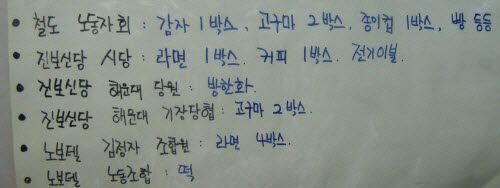 • 철도 노동자회 : 감자 1박스, 고구마 2박스, 종이컵 1박스, 빵 등등
• 진보신당 시당 : 라면 1박스. 커피 1박스. 전기이불.
• 진보신당 해운대 당원 : 방한화.
• 진보신당 해운대 기장당협 : 고구마 2박스.
• 노보텔 김정자 조합원 : 라면 4박스.
• 노보텔 노동조합 : 떡